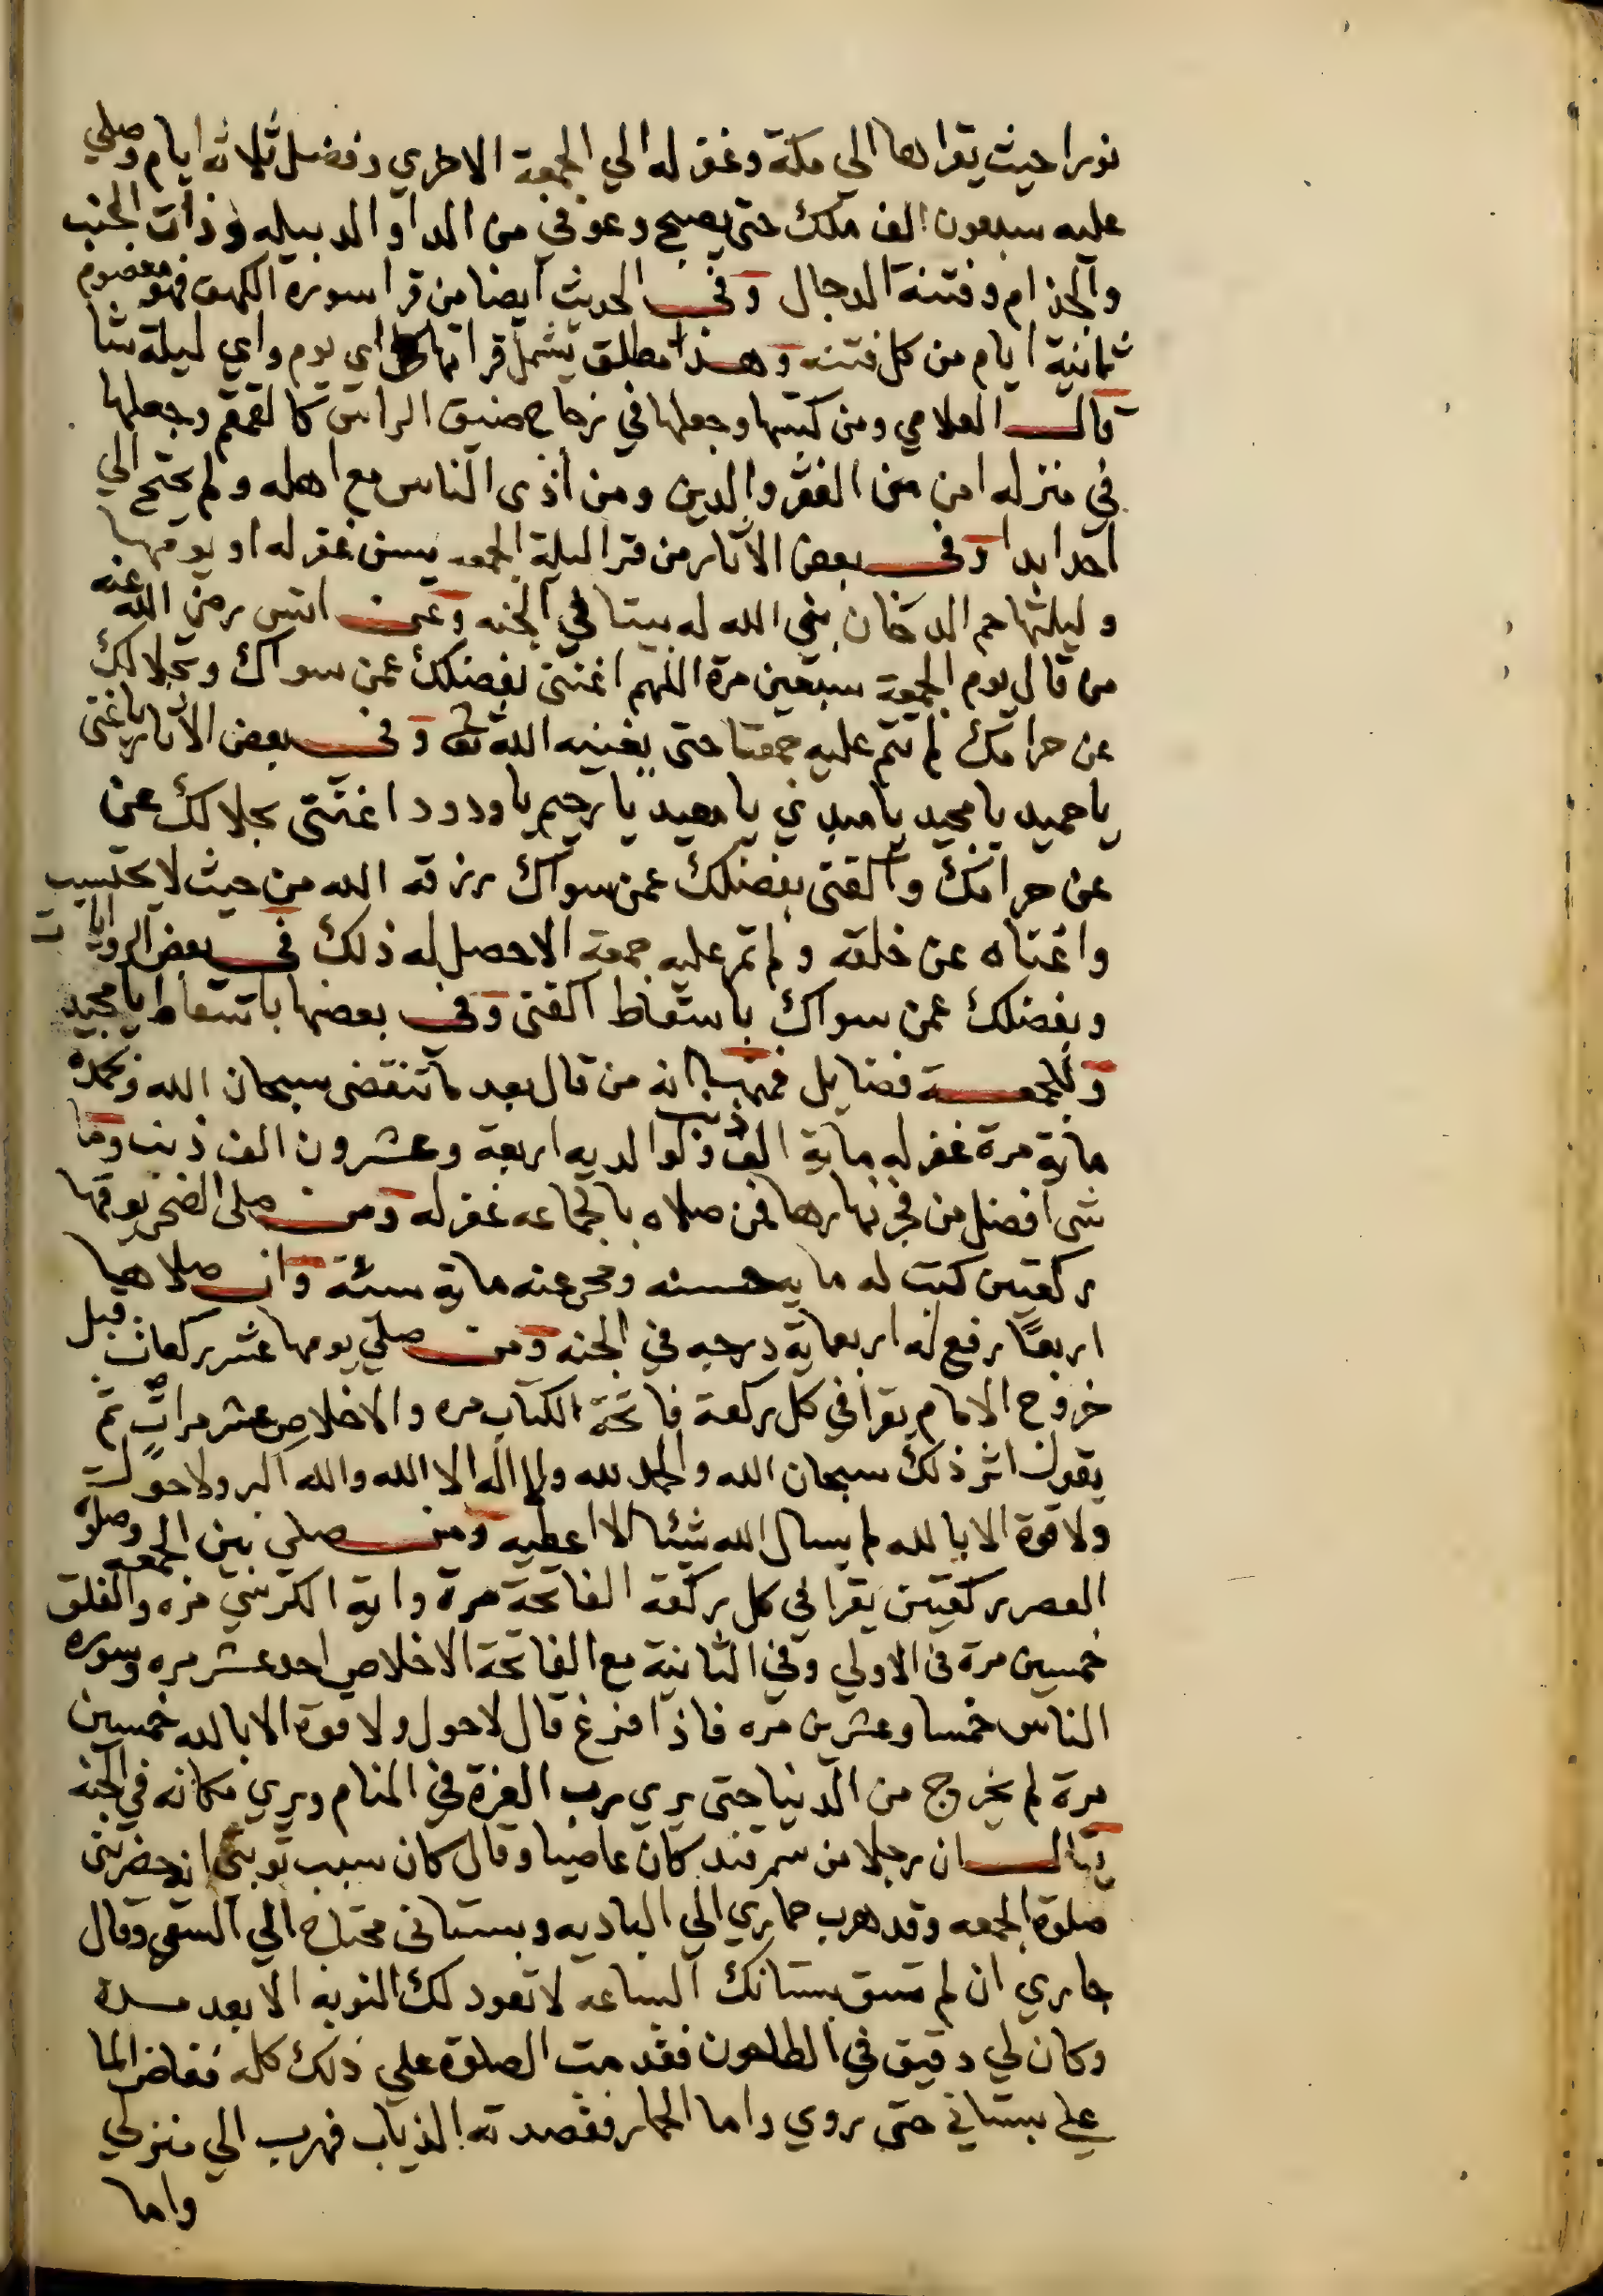 نورا حيث يقراها الي مكة وغفر له الي الجمعة الاخري وفضل ثلاثه ايام وصلي
عليه سبعون الف ملك حتى يصبح وعوفي من الدا والدبيله وذات الجنب
والجذام وفتنة الدجال وفي الحديث ايضا من قرا سورة الكهف فهو معصوم
ثمانية ايام من كل فتنه وهذا مطلق يشمل قراتها اي يوم واي ليلة شا
قال العلامي ومن كتبها وجعلها في زجاج ضيق الراس كالقمقم وجعلها
في منزله امن من الفقر والدين ومن اذى الناس مع اهله ولم يحتج الي
احد ابدا وفي بعض الاثار من قرا ليلة الجمعه يس غفر له او يومها
وليلتها حم الدخان بني الله له بيتا في الجنه وعن انس رضي الله عنه
من قال يوم الجمعة سبعين مرة اللهم اغنني بفضلك عمن سواك وبحلالك
عن حرامك لم تتم عليه جمعتا حتى يغنيه الله تعا وفي بعض الاثار يا غني
يا حميد يا مجيد يا مبدي يا معيد يا رحيم يا ودود اغنني بحلالك عن
عن حرامك واكفني بفضلك عمن سواك رزقه الله من حيث لا يحتسب
واغناه عن خلقه ولم تمر عليه جمعة الا حصل له ذلك في بعض الروايات
وبفضلك عمن سواك باسقاط اكفني وفي بعضها باسقاط يا مجيد
وللجمعة فضايل فمنها انه من قال بعد ما تنقضي سبحان الله وبحمده
ماية مرة غفر له ماية الف ذنب ولوالديه اربعة وعشرون الف ذنب وما
شي افضل من فجر نهارها فمن صلاه بالجماعه غفر له ومن صلى الضحى يومها
ركعتين كتب له ماية حسنه ومحى عنه ماية سئة وان صلاها
اربعًا رفع له اربعماية درجه في الجنه ومن صلي يومها عشر ركعات قبل
خروج الامام يقرا في كل ركعة فاتحة الكتاب مره والاخلاص عشر مرات ثم
يقول اثر ذلك سبحان الله والحمد لله ولا اله الا الله والله اكبر ولا حول
ولا قوة الا بالله لم يسال الله شيئا الا اعطيه ومن صلي بين الجمعه وصلوة
العصر ركعتين يقرا في كل ركعة الفاتحة مرة واية الكرسي مره والفلق
خمسين مرة في الاولي وفي الثانية مع الفاتحة الاخلاص احد عشر مره وسوره
الناس خمسا وعشرين مره فاذا فرغ قال لا حول ولا قوة الا بالله خمسين
مرة لم يخرج من الدنيا حتى يري رب العزة في المنام ويري مكانه في الجنه
يقال ان رجلا من سمرقند كان عاصيا وقال كان سبب توبتي ان حضرتني
صلوة الجمعه وقد هرب حماري الي الباديه وبستاني محتاج الي السقي وقال
جاري ان لم تسق بستانك الساعة لا تعود لك النوبه الا بعد مدة
وكان لي دقيق في الطاحون فقدمت الصلوة علي ذلك كله ففاض الما
علي بستاني حتى روي واما الحمار فقصدته الذياب فهرب الي منزلي
واما